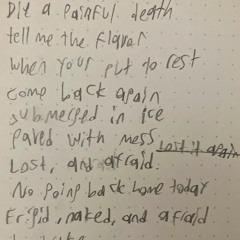 Die a painful death
tell me the flavor
when your put to rest
Come back again
submerged in ice
paved with mess Lost it again
Lost, and afraid.
No going back home today
Frigid, naked, and afraid